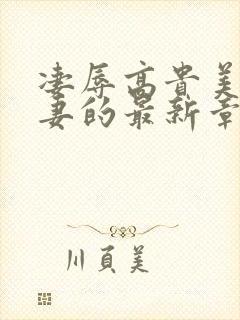 凄辱高贵美
妻的最新章
川页美